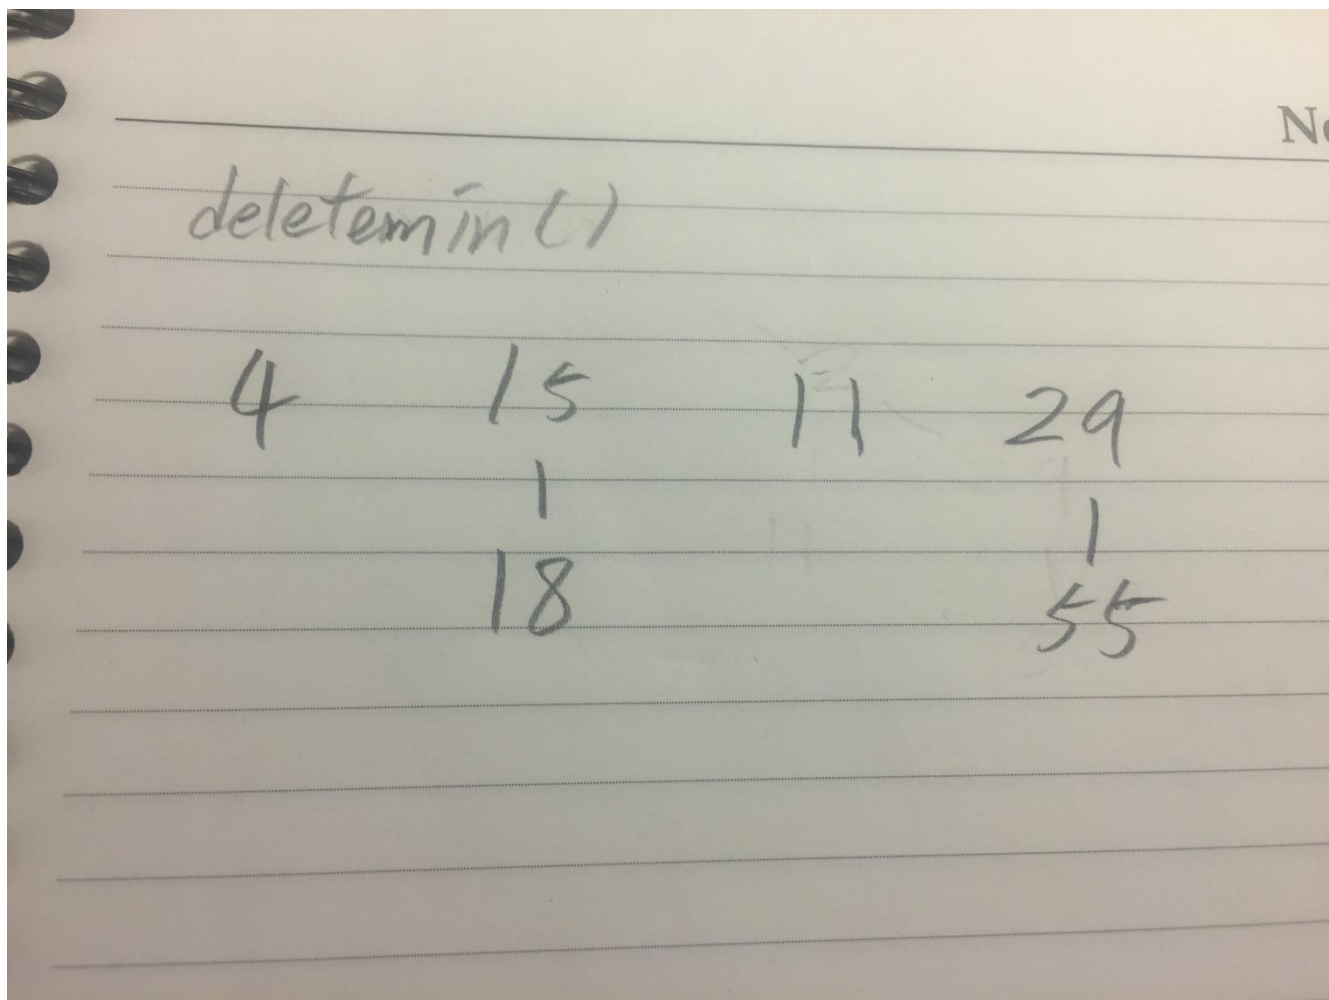 No
deletemin()
4 15 11 29
| |
18 55